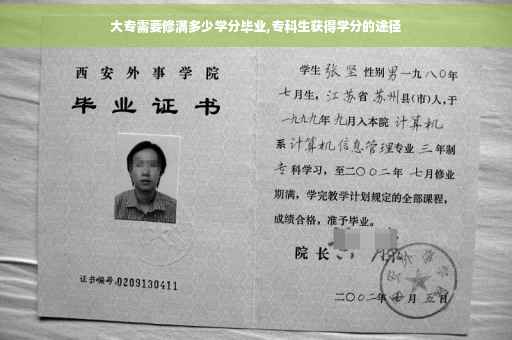 大专需要修满多少学分毕业,专科生获得学分的途径
西安外事学院
毕业证书
证书编号:0209130411
学生张坚性别男一九八〇年
七月生，江苏省苏州县(市)人,于
一九九九年九月入本院计算机
系计算机信息管理专业三年制
专科学习，至二〇〇二年七月修业
期满，学完教学计划规定的全部课程，
成绩合格，准予毕业。
院长
二〇〇二年 月五日